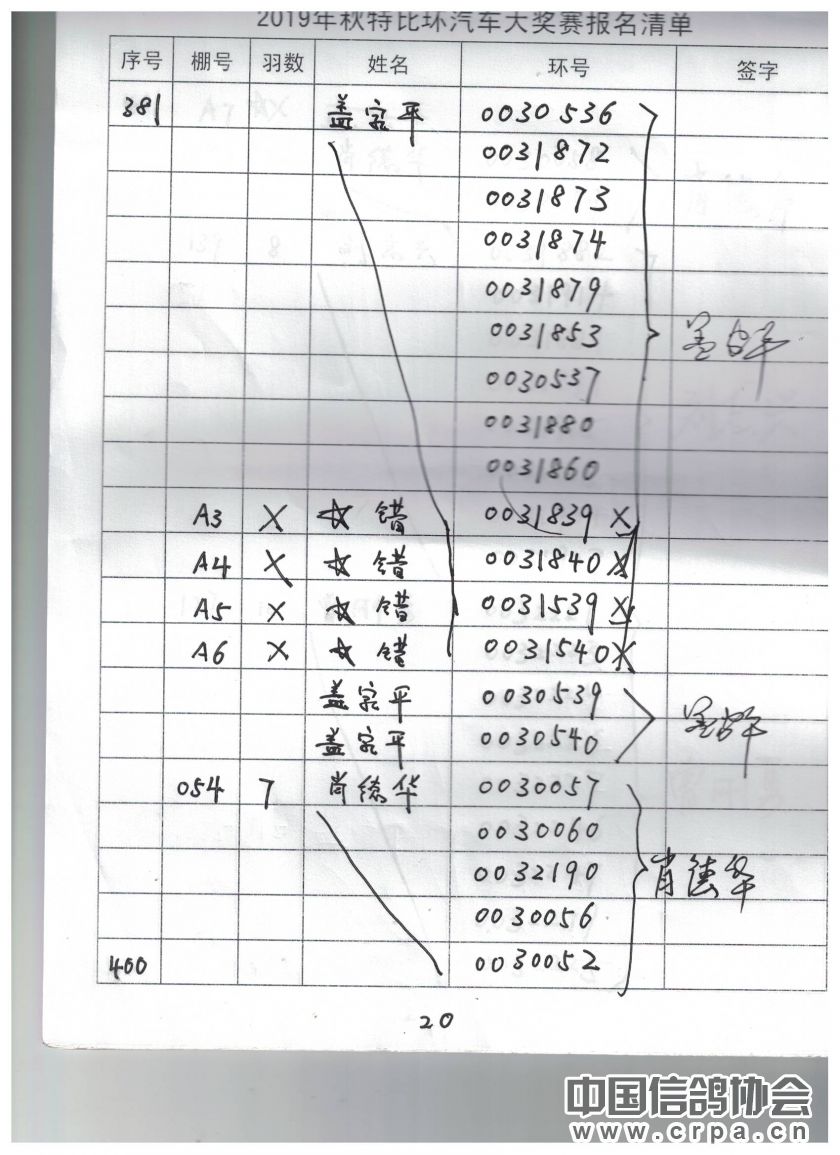 2019年秋特比环汽车大奖赛报名清单
序号 棚号 羽数 姓名 环号 签字
381 盖家平 0030536
0031872
0031873
0031874
0031879
0031853 盖家平
0030537
0031880
0031860
A3 X 女 错 0031839 X
A4 X 女 错 0031840 X
A5 X 女 错 0031539 X
A6 X 女 错 0031540 X
盖家平 0030539
盖家平 0030540
054 7 肖德华 0030057
0030060
0032190 肖德华
0030056
400 0030052
20
中国信鸽协会
www.crpa.cn